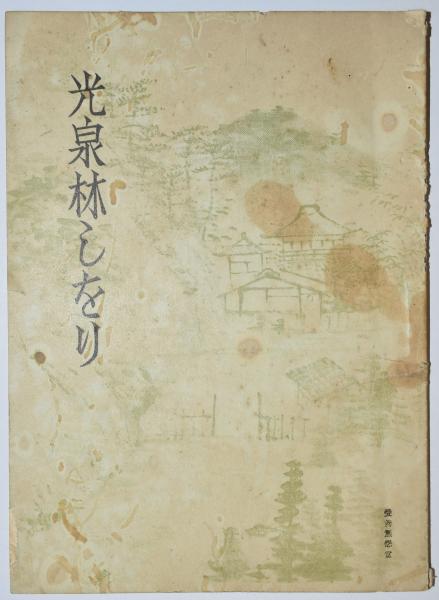 光泉林しをり